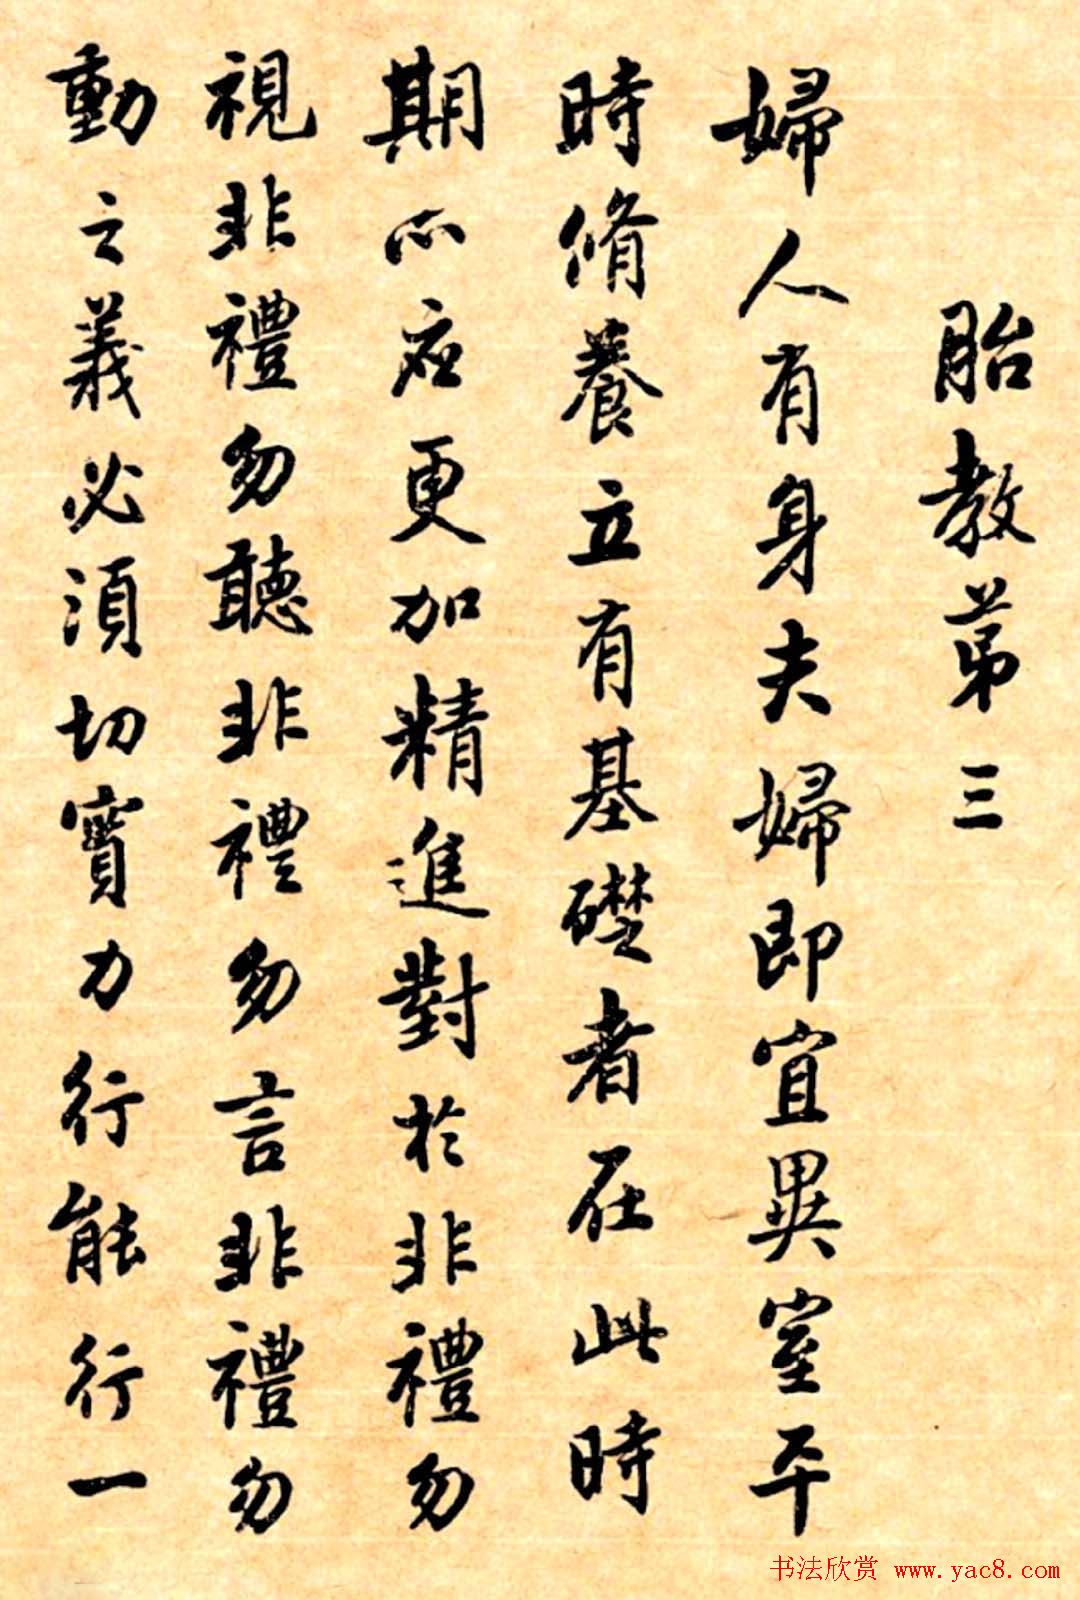 胎教第三
婦人有身夫婦即宜異室平
時脩養立有基礎者在此時
期心应更加精進對於非禮勿
視非禮勿聽非禮勿言非禮勿
動之義必須切實力行能行一
书法欣赏 www.yac8.com